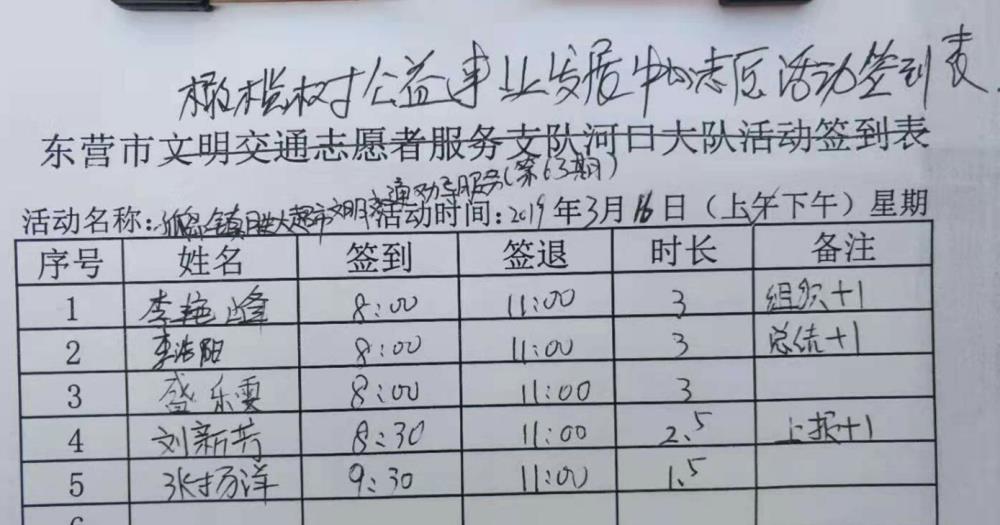 橄榄树公益事业发展中心志愿活动签到表
东营市文明交通志愿者服务支队河口大队活动签到表
活动名称:孤岛镇胜大超市文明交通劝导服务(第63期) 活动时间:2019年3月16日(上午下午)星期
序号 姓名 签到 签退 时长 备注
1 李艳峰 8:00 11:00 3 组织+1
2 李浩阳 8:00 11:00 3 总结+1
3 盛乐雯 8:00 11:00 3
4 刘新芳 8:30 11:00 2.5 上报+1
5 张扬洋 9:30 11:00 1.5